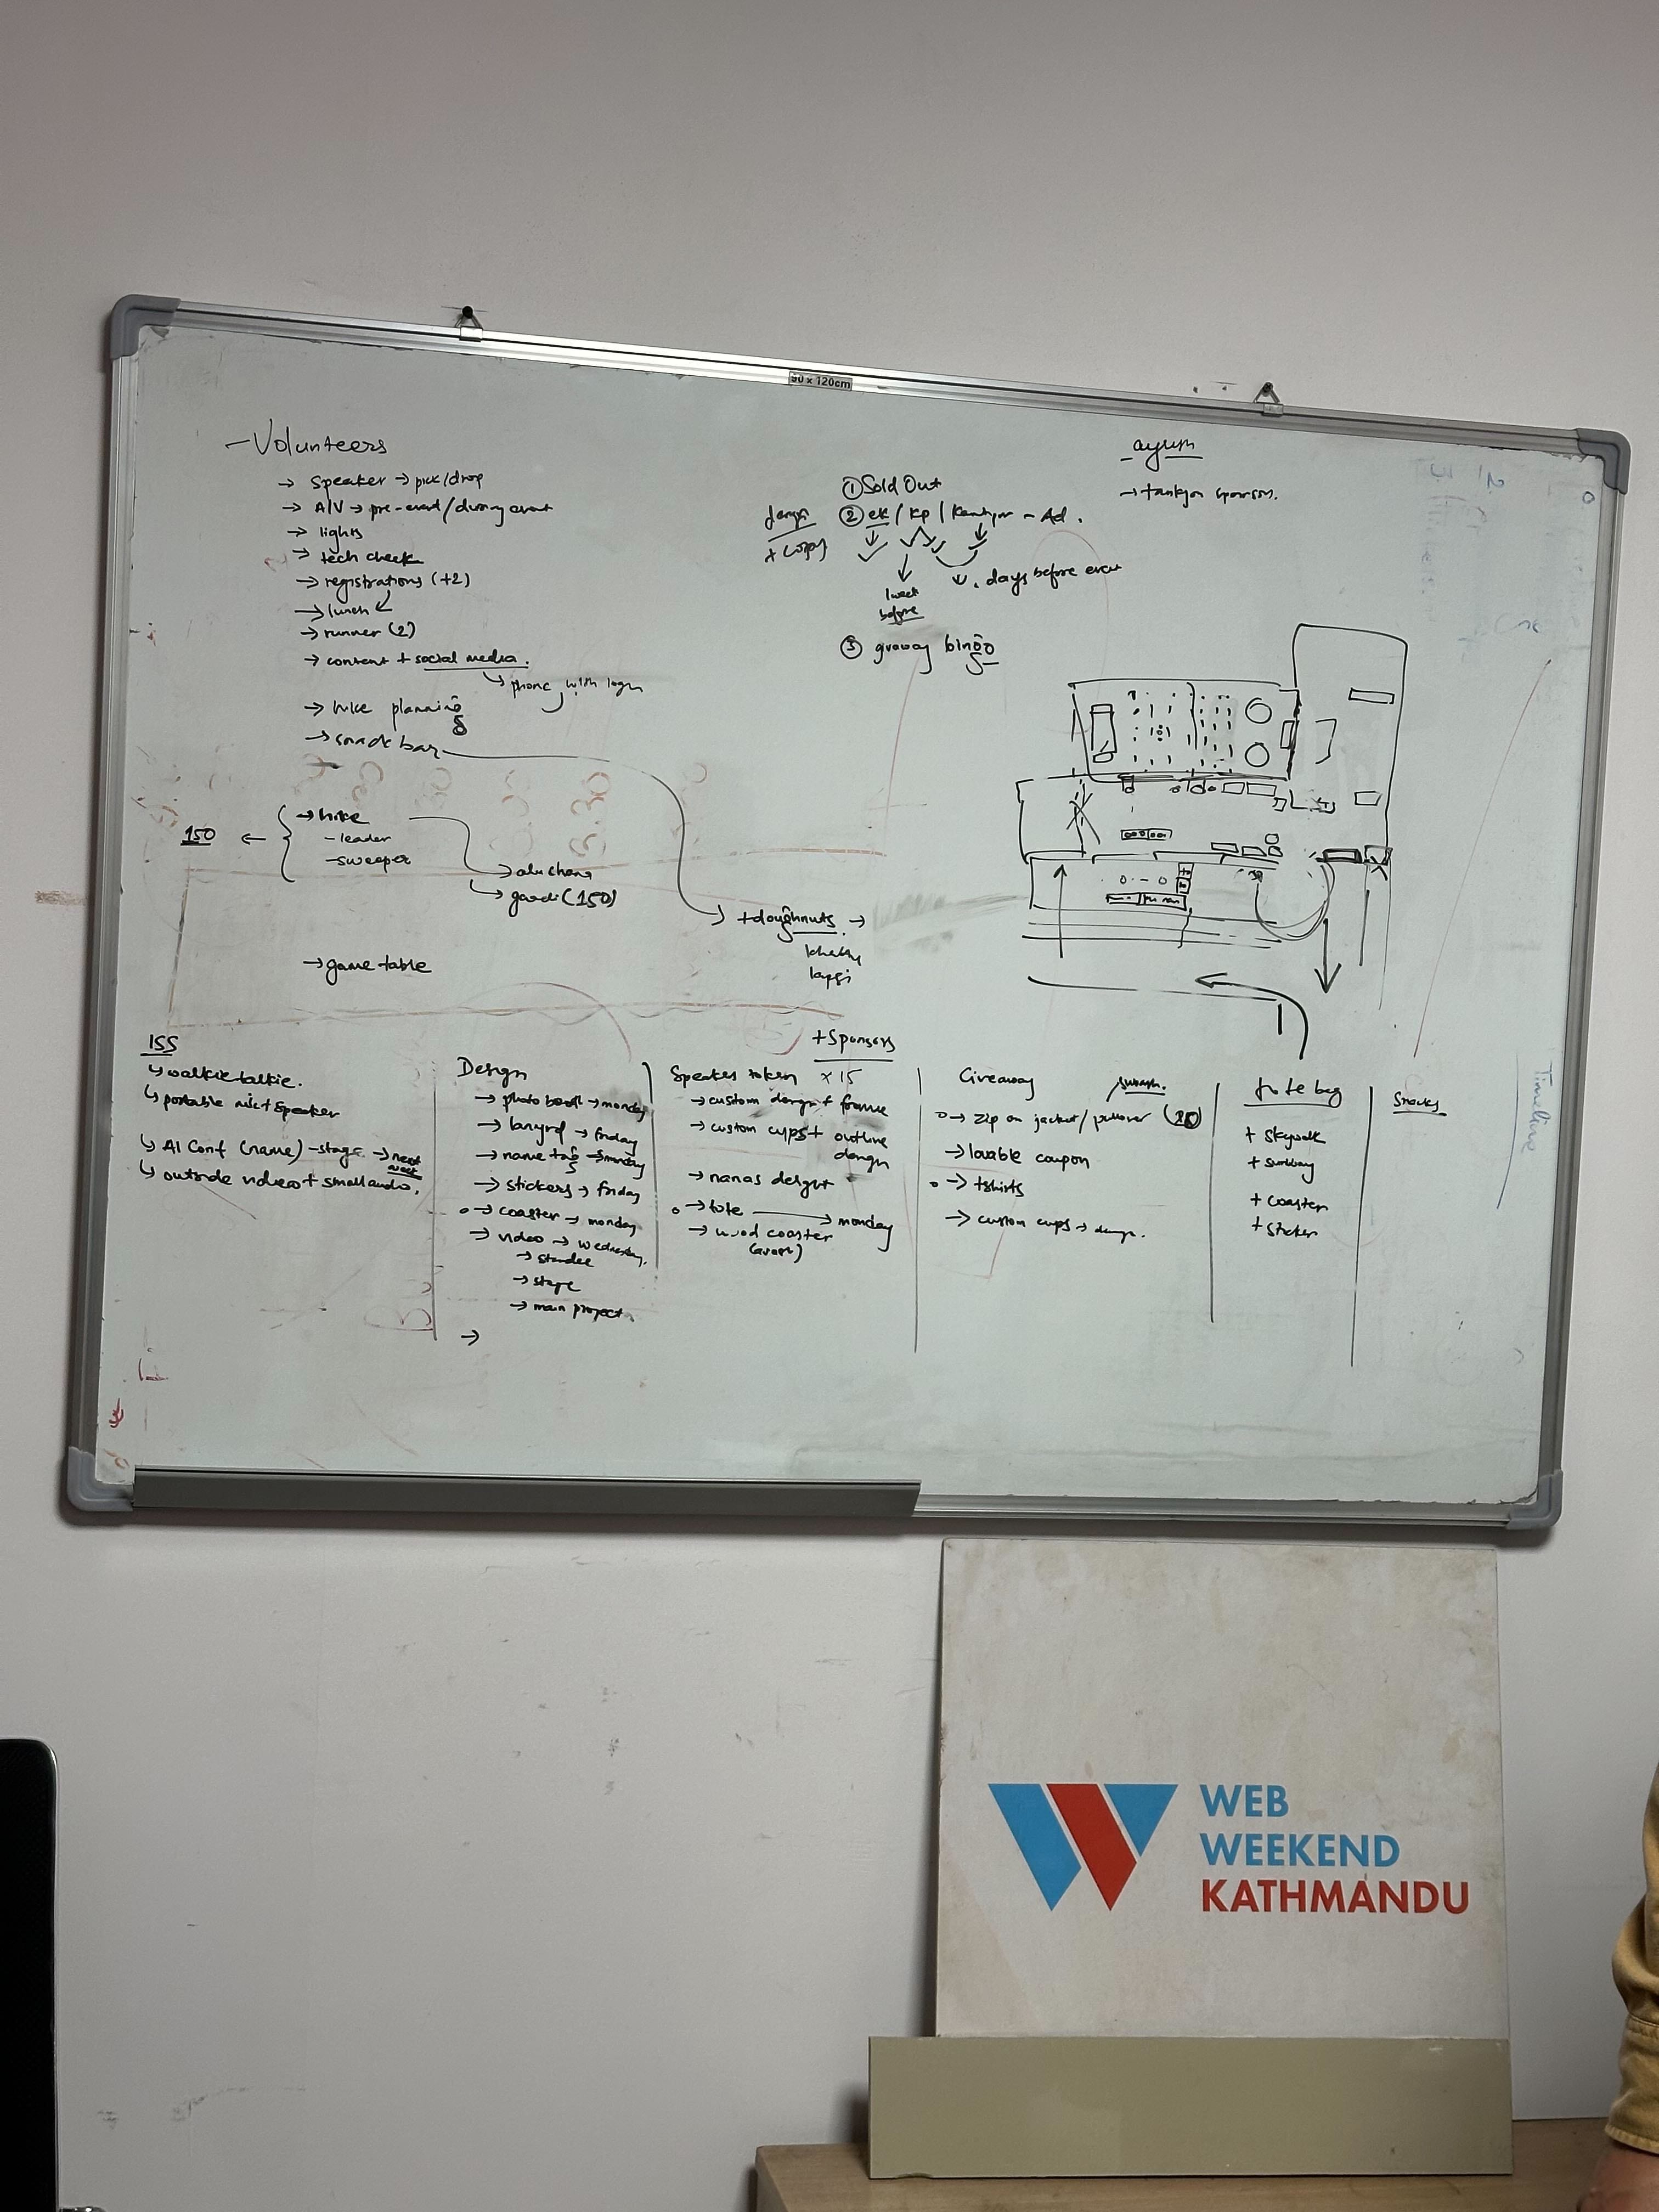 90 x 120cm
- Volunteers
→ Speaker → pick/drop
→ A/V → pre-event/during event
→ lights
→ tech check
→ registrations (+2)
→ lunch
→ runner (2)
→ content + social media.
↳ phone with login
→ hike planning
→ snack bar
150 ← { → hike
- leader
- sweeper
→ alu
→ (150)
→ game table
+ doughnuts →
lapsi
design
+ copy
① Sold Out
② ek / kp / - Ad.
1 week
before
days before event
③ bingo
ayush
→ sponsors.
Timeline
ISS
↳ walkie talkie.
↳ portable mic + speaker
↳ AI Conf (name) - stage → next
week
↳ outside video + small audio.
Design
→ photo booth → monday
→ lanyrd → friday
→ name tag → monday
→ stickers → friday
→ coaster → monday
→ video → wednesday.
→ standee
→ stage
→ main project.
→
+ Sponsors
Speaker token x 15
→ custom design + frame
→ custom cups + outline
design
→ nanas
→ tote → monday
→ wood coaster
Giveaway
→ zip on jacket / pullover
→ lovable coupon
→ tshirts
→ custom cups →
tote bag
+ skywalk
+
+ coaster
+ sticker
Snacks
WEB
WEEKEND
KATHMANDU